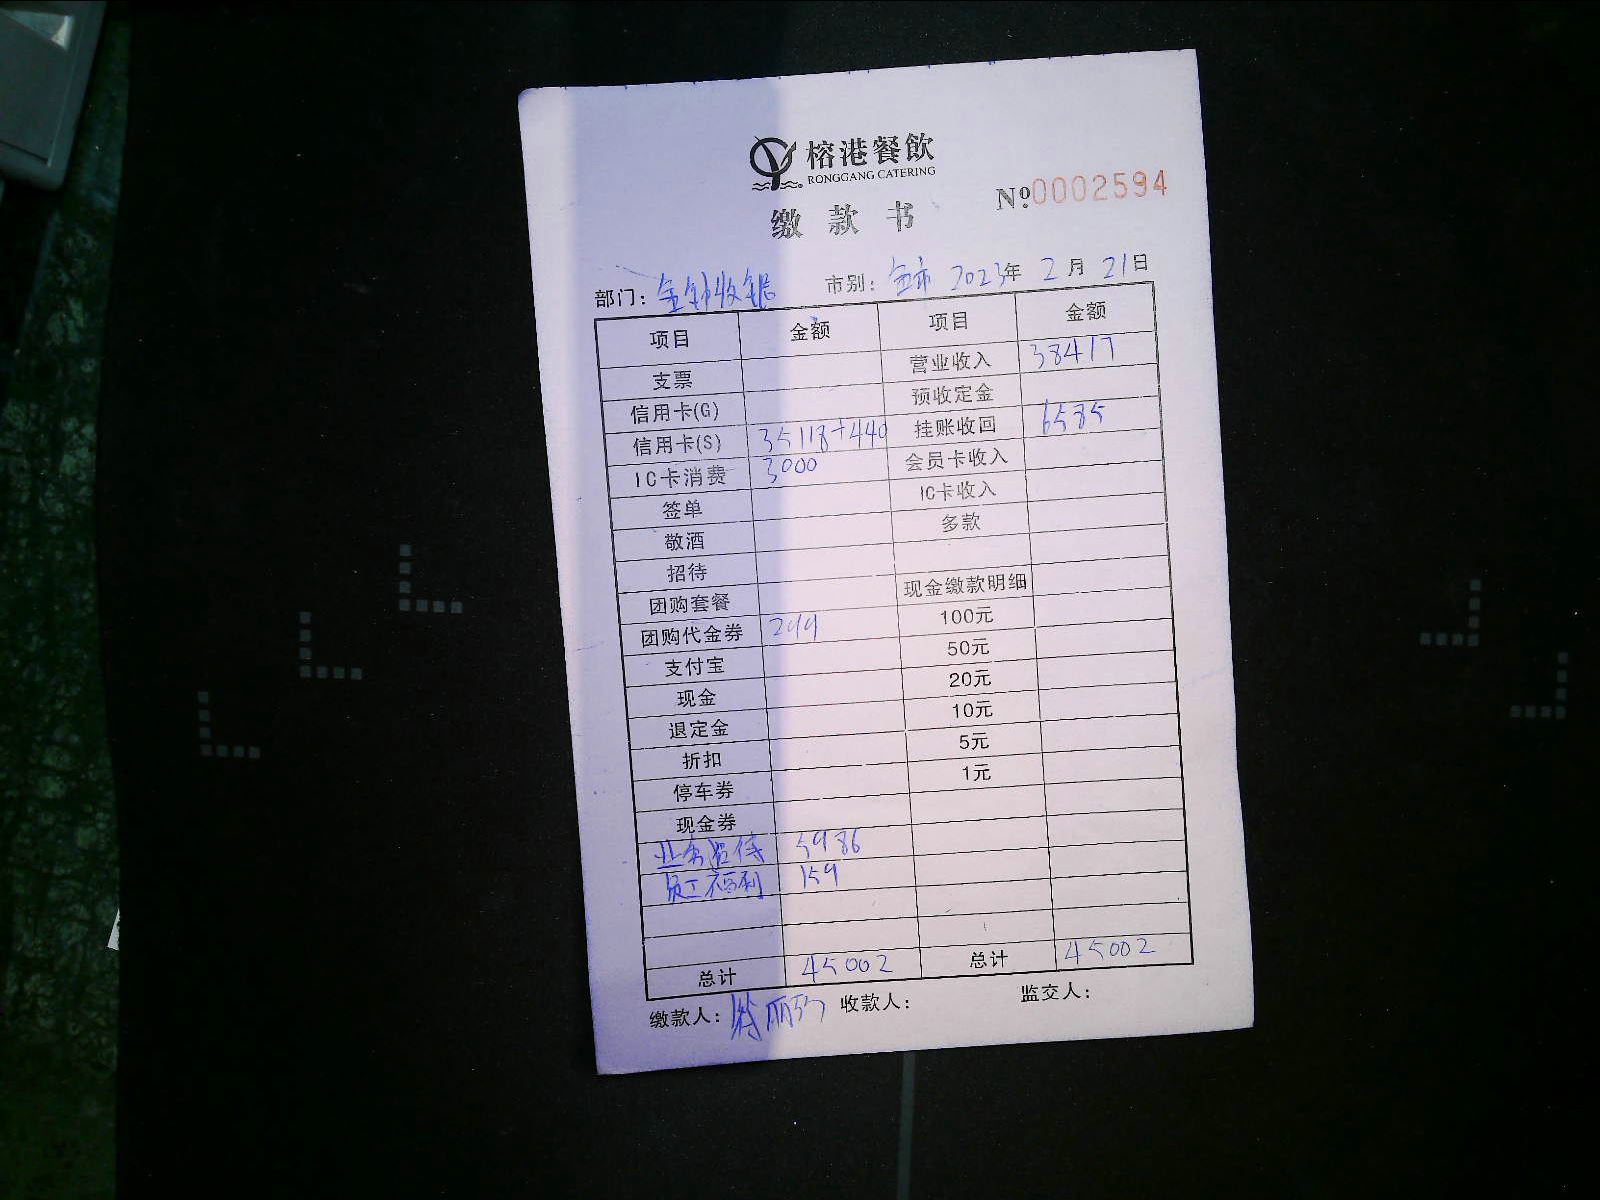 榕港餐飲
RONGGANG CATERING
Nº:0002594
缴款书
部门: 收银 市别: 全市 2023年 2月 21日
项目 金额 项目 金额
支票 营业收入 38417
信用卡(G) 预收定金
信用卡(S) 35118+440 挂账收回 6585
IC卡消费 3000 会员卡收入
签单 IC卡收入
敬酒 多款
招待
团购套餐 现金缴款明细
团购代金券 299 100元
支付宝 50元
现金 20元
退定金 10元
折扣 5元
停车券 1元
现金券
业务招待 5986
员工福利 159
总计 45002 总计 45002
缴款人: 收款人: 监交人: